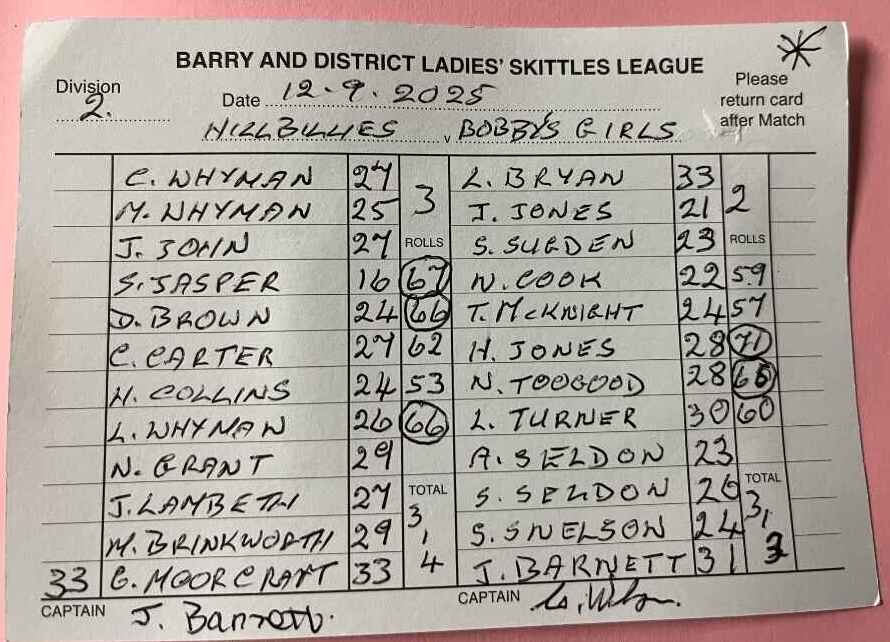 BARRY AND DISTRICT LADIES' SKITTLES LEAGUE
Division 2. Date 12.9.2025 Please return card after Match
HILLBILLIES v BOBBY'S GIRLS
C. WHYMAN 27 3 L. BRYAN 33 2
M. WHYMAN 25 J. JONES 21
J. BOHN 27 ROLLS S. SUGDEN 23 ROLLS
S. JASPER 16 67 N. COOK 22 59
D. BROWN 24 66 T. McKNIGHT 24 57
C. CARTER 27 62 H. JONES 28 71
H. COLLINS 24 53 N. TOOGOOD 28 66
L. WHYMAN 26 66 L. TURNER 30 60
N. GRANT 29 A. SELDON 23
J. LAMBETH 27 TOTAL 3 S. SELDON 26 TOTAL 3
M. BRINKWORTH 29 1 S. SNELSON 24 1
33 G. MOORCRAFT 33 4 J. BARNETT 31 3
CAPTAIN J. Barrett. CAPTAIN